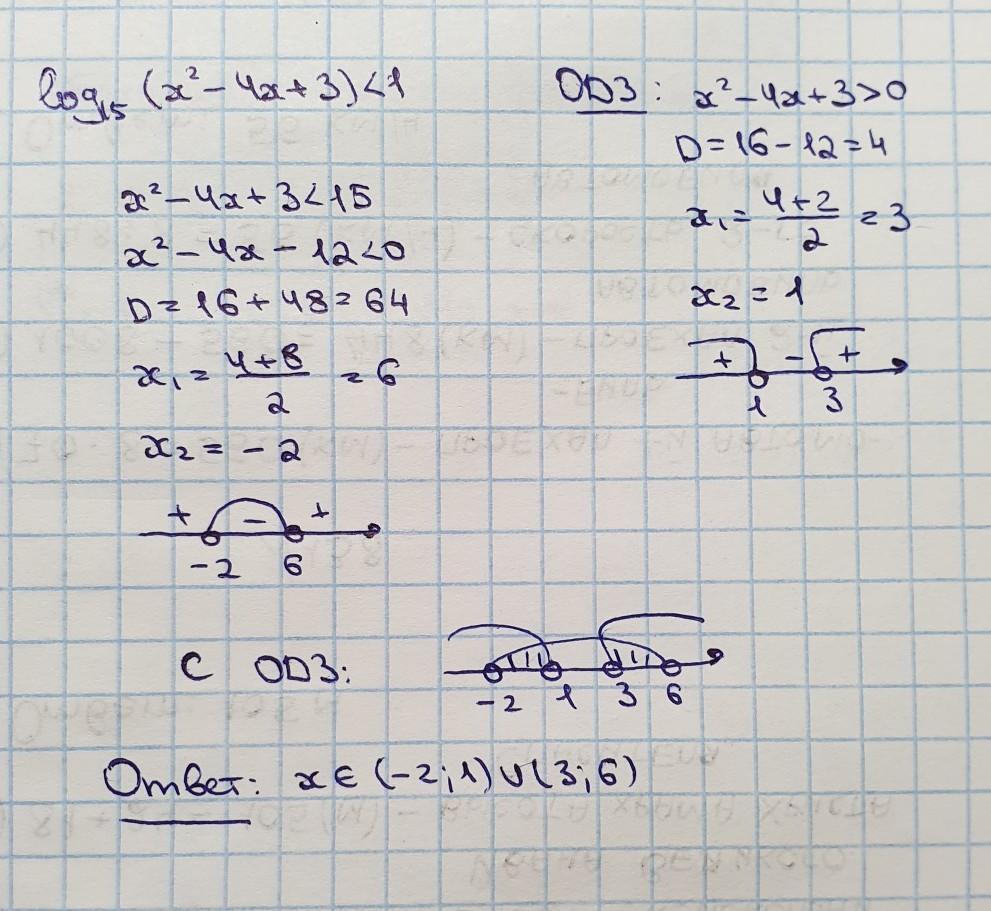 log₁₅ (x² - 4x + 3) < 1
x² - 4x + 3 < 15
x² - 4x - 12 < 0
D = 16 + 48 = 64
x₁ = (4 + 8)/2 = 6
x₂ = - 2
+ - +
-2 6
ОДЗ: x² - 4x + 3 > 0
D = 16 - 12 = 4
x₁ = (4 + 2)/2 = 3
x₂ = 1
+ - +
1 3
С ОДЗ:
-2 1 3 6
Ответ: x ∈ (-2; 1) ∪ (3; 6)